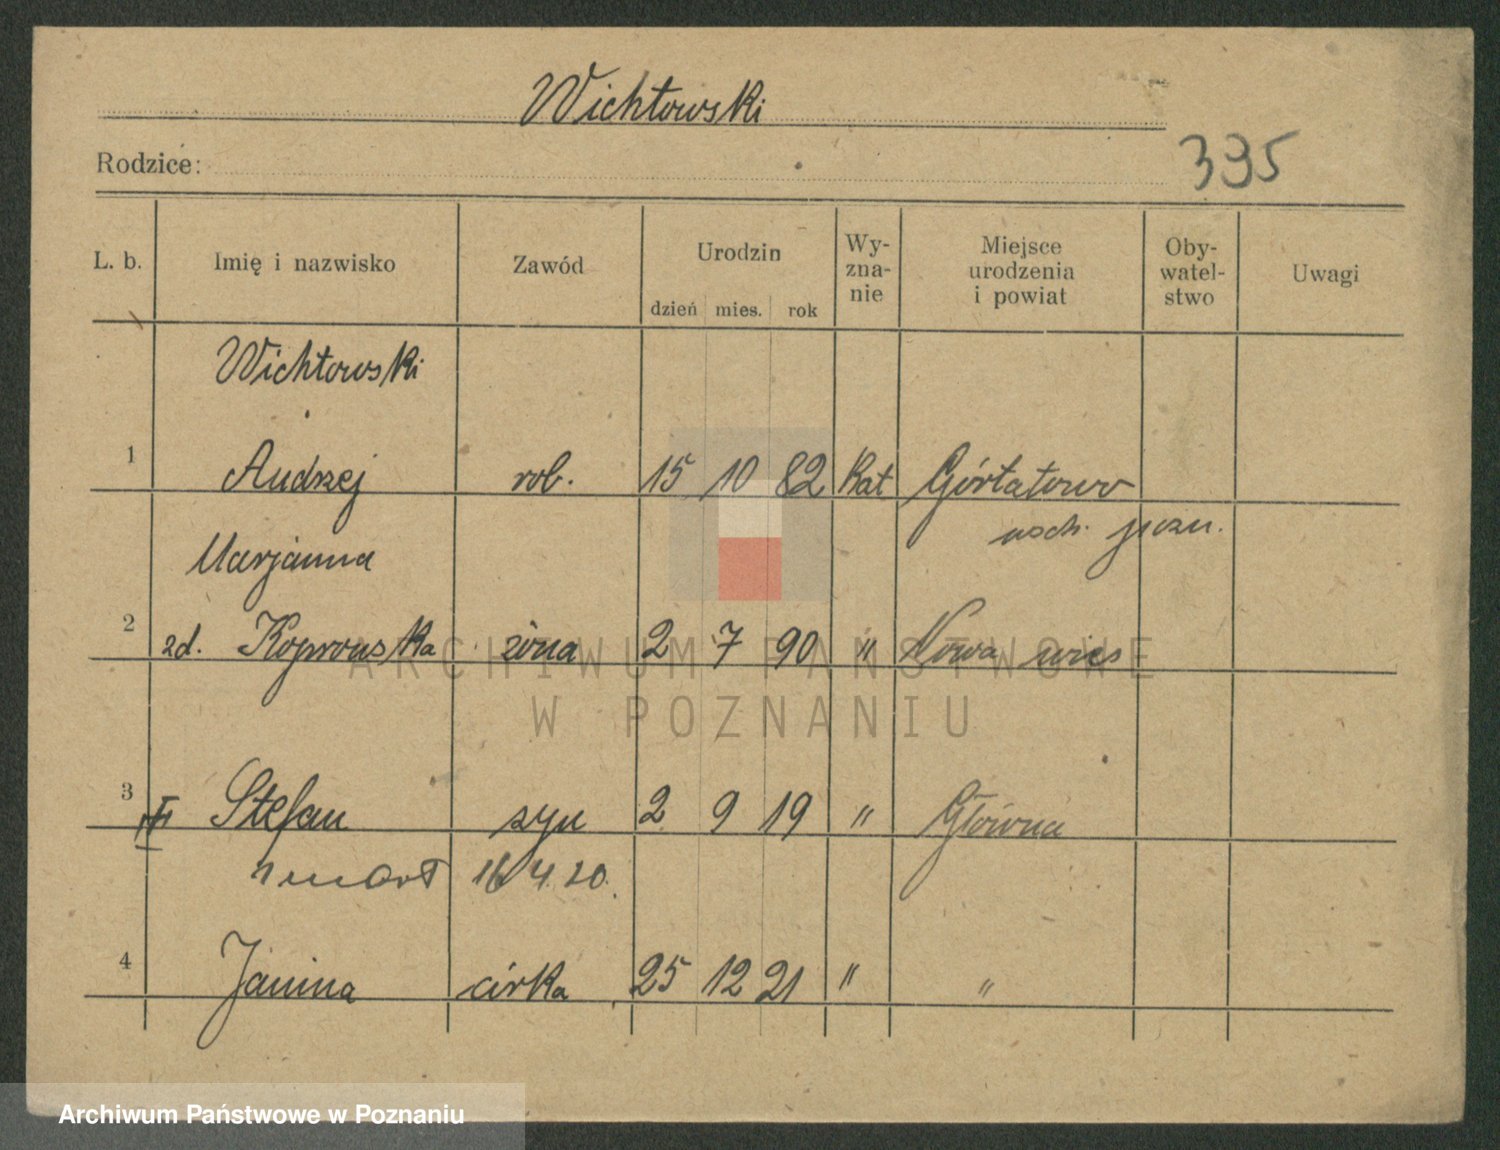 Wichtowski
Rodzice:
395
L. b.
Imię i nazwisko
Zawód
Urodzin
dzień mies. rok
Wy-
zna-
nie
Miejsce
urodzenia
i powiat
Oby-
watel-
stwo
Uwagi
Wichtowski
1 Andrzej rob. 15 10 82 Kat Górtatowo
wsch. pozn.
Marjanna
2 zd. Koprowska żona 2 7 90 " Nowa wieś
3 Stefan syn 2 9 19 " Główna
zmarł 16 4. 20.
4 Janina córka 25 12 21 " "
ARCHIWUM PAŃSTWOWE
W POZNANIU
Archiwum Państwowe w Poznaniu